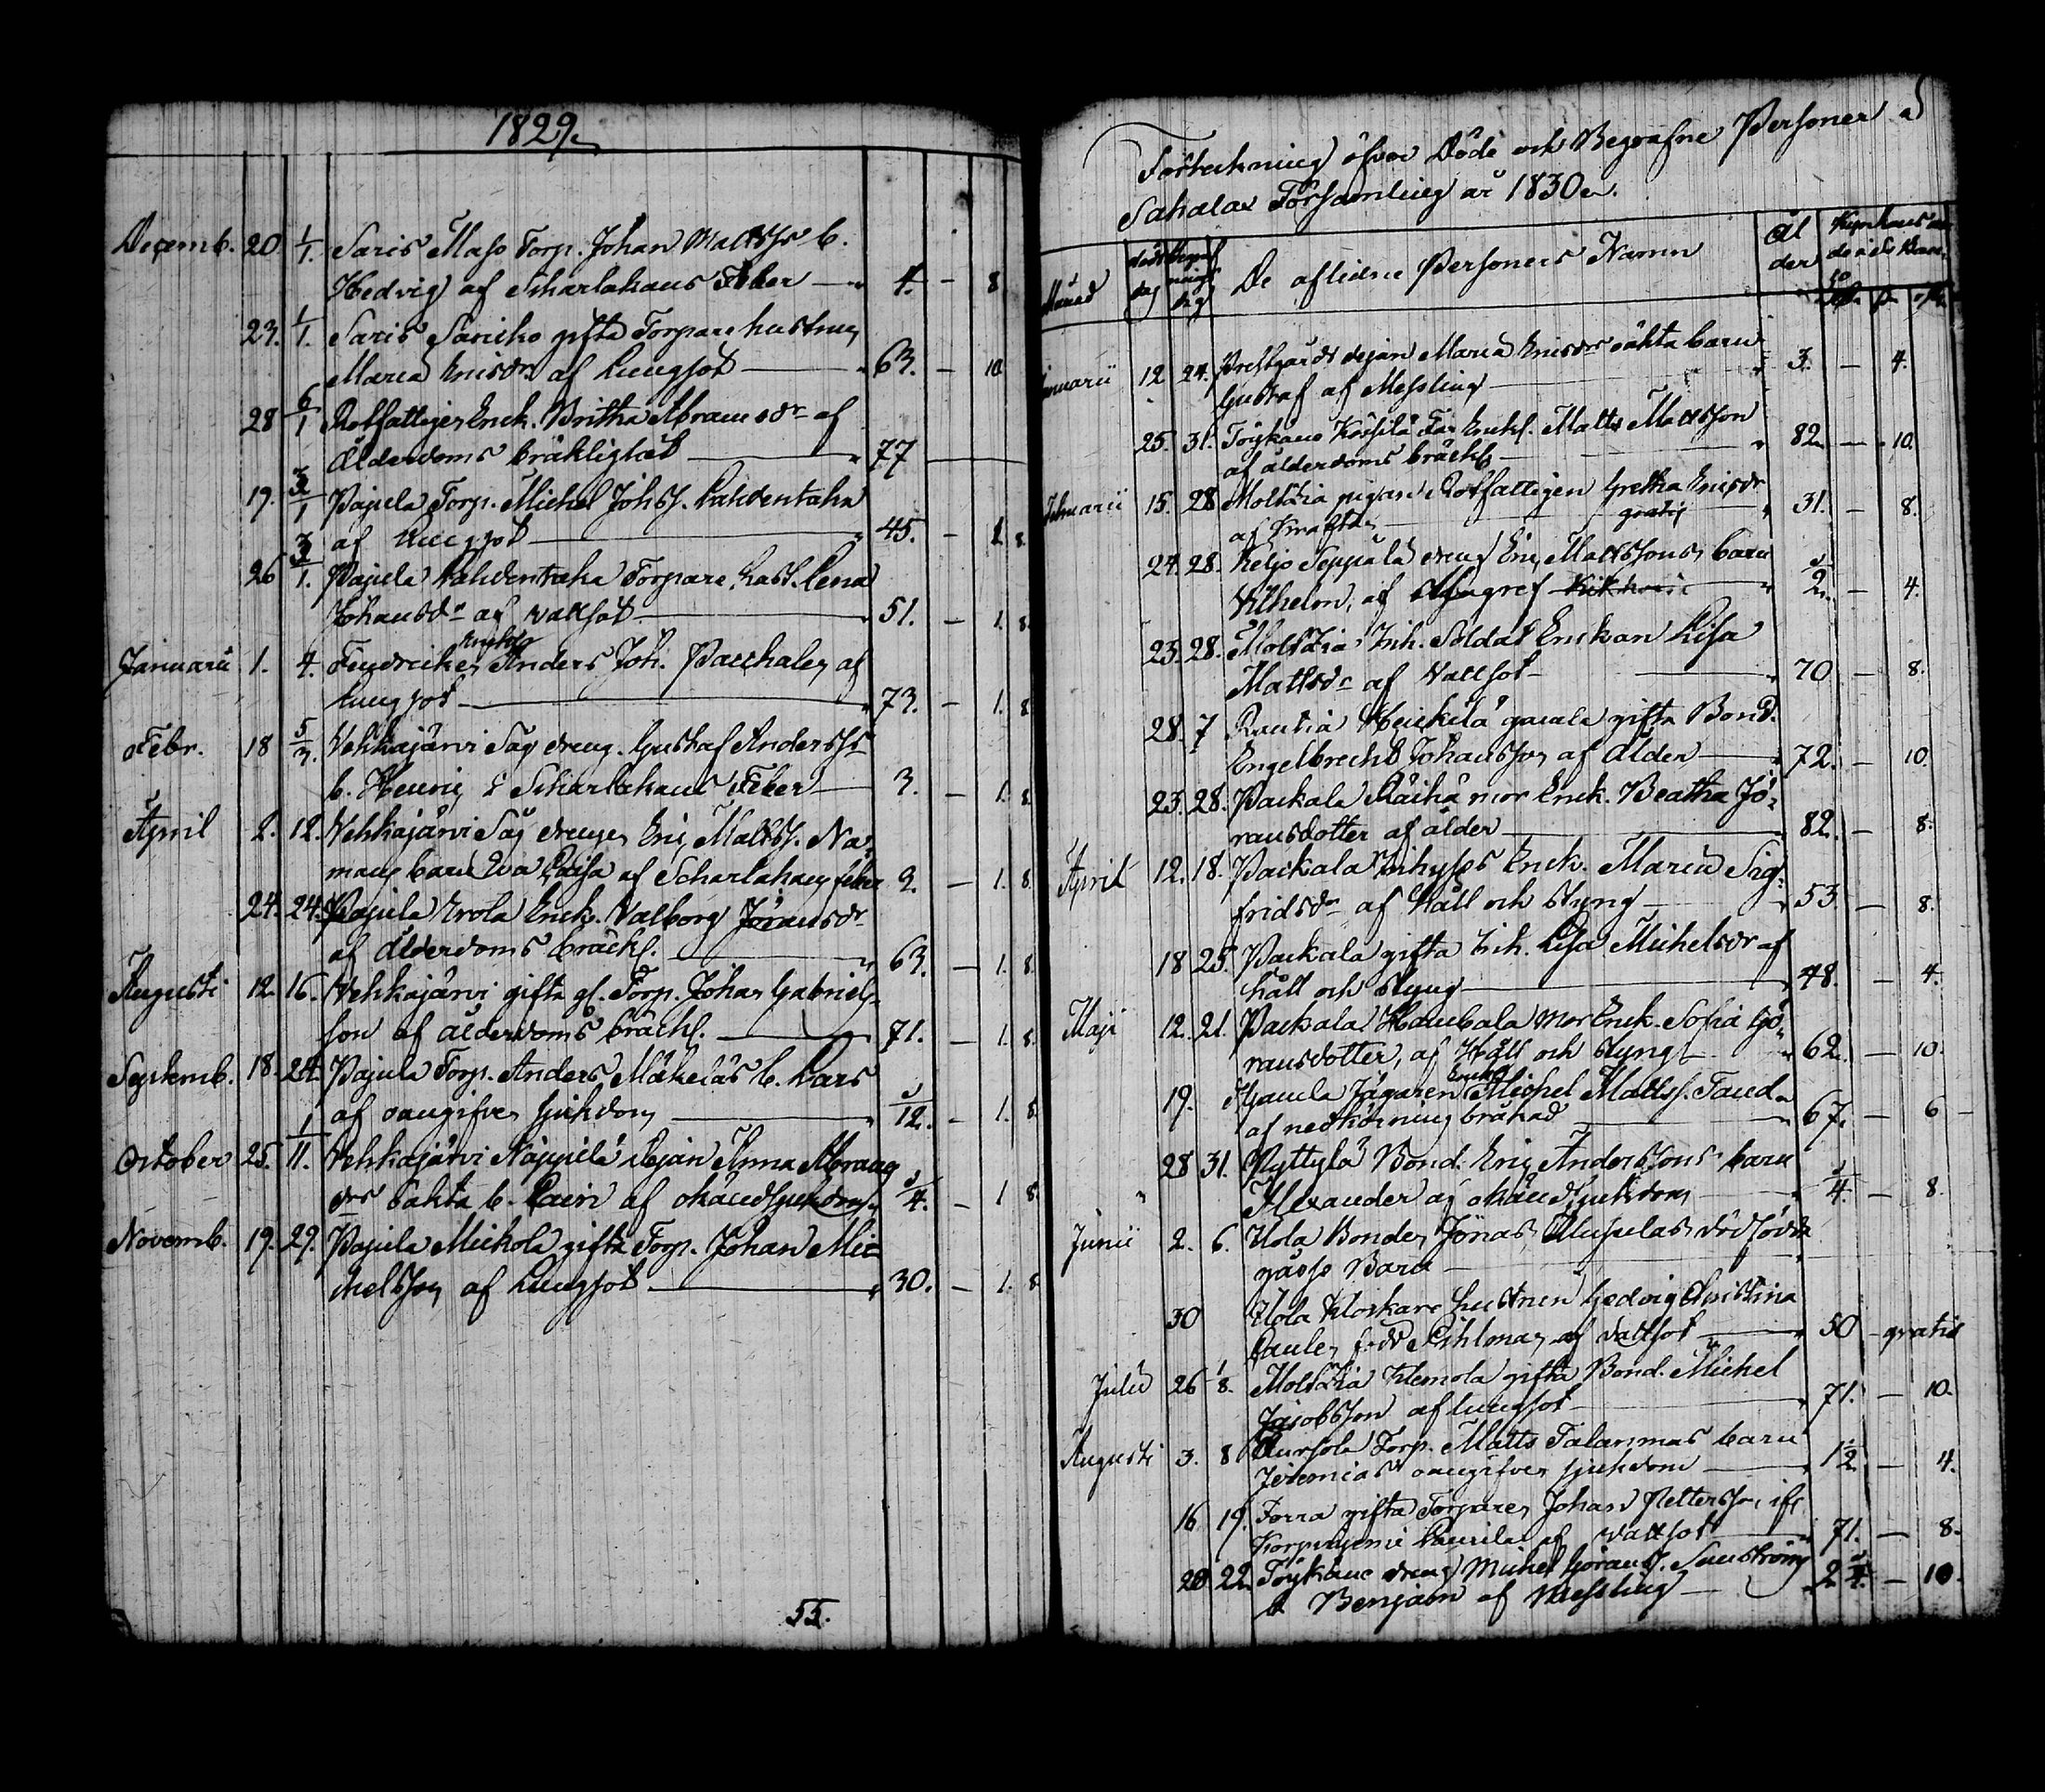 1829.
Decemb. 20 1/1. Saris Maso Torp. Johan Mattss b.
Hedvig af Scharlakans Feber — 4. — 8
23. 1/1. Saris Saricko gifta Torpare hustrun
Maria Ericsdr af Lungsot — 63. — 10
28 6/1 Rotfattigen Enck. Britha Abramsdr af
Ålderdoms bräklighet — 77 —
19. 3/1 Pajula Torp. Michel Johss. Lahdentaka
af Lungsot — 45. — 1. 8.
26 3/1. Pajula Lahdentaka Torpare hust. Lena
Johansdr af vattsot — 51. — 1. 8.
Januarii 1. 4. Enckl.
Anders Joh. af
Lungsot — 73. — 1. 8.
Febr. 18 5/3. Vehkajärvi Såg dreng. Gustaf Anderss
b. Scharlakans Feber — 3. — 1. 8.
April 2. 12. Vehkajärvi Såg drengen Eric Mattss. Na-
mans barn Eva Caisa af Scharlakans feber 3. — 1. 8.
24. 24. Pajula Erola Enck. Valborg Jöransdr
af Ålderdoms bräckl. — 63. — 1. 8.
Augusti 12. 16. Vehkajärvi gifta gl. Torp. Johan Gabriels-
son af ålderdoms bräckl. — 71. — 1. 8.
Septemb. 18. 24. Pajula Torp. Anders Mäkeläs b. Lars
af oangifven sjukdom — 12. — 1. 8.
October 25. 1/11. Vehkajärvi Näppilä Pejan Anna Abrams
drs oäkta b. af okänd sjukdom 4. — 1 8.
Novemb. 19. 29. Pajula Mickola gifta Torp. Johan Mic
helsson af Lungsot — 30. — 1. 8.
55.
Förteckning öfver Döde och Begrafne Personer i
Sahalax Församling år 1830.
Månad döds dag begrafnings dag De aflidne Personers Namn Ål
der
Januarii 12 24. Prestgårds pejan Maria Ericsdrs oäkta barn
Gustaf af Messling — 3. — 4.
25. 31. Töykäns Far Enckl. Matts Mattsson
af ålderdoms bräckl. — 82 — 10.
Februarii 15. 28 Moltzia pigan Rotfattigen Gretha Ericsdr
af Kräfta gratis — 31. — 8.
24. 28. Keljo Seppälä dreng Eric Mattssons barn
Vilhelm, af — 2. — 4.
23. 28. Moltzia Inh. Soldat Enckan Lisa
Mattsdr af Vattsot — 70 — 8.
28. 7 Rautia Heickilä gamla gifta Bond.
Engelbrecht Johansson af Ålder — 72. — 10.
23. 28. Packala Räihä mor Enck. Beatha Jö-
ransdotter af ålder — 82. — 8.
April 12. 18. Packala Inhyses Enck. Maria Sig-
fridsdr af Håll och styng — 53 — 8.
18 25. Packala gifta Inh. Lisa Michelsdr af
håll och styng — 48. — 4.
Maji 12. 21. Packala Haubala mor Enck. Sofia Gö-
ransdotter, af Håll och styng — 62. — 10.
19. Enckl.
Gamla Jägaren Michel Mattss. Tand
af nedkörning bråkad — 67. — 6 —
28 31. Pyttylä Bond. Eric Anderssons barn
Alexander af okänd sjukdom — 4. — 8.
Junii 2. 6. Ilola Bonden Jonas dödfödt
gosse Barn —
30 Ilola Klockare hustrun Hedvig Christina
född Pihlman af vattsot — 50 — gratis
Julii 26 1/8. Moltzia Klemola gifta Bond. Michel
Jacobsson af lungsot — 71. — 10.
Augusti 3. 8 Torp. Matts Talammas barn
Jeremias oangifven sjukdom — 1½ — 4.
16 19. Torra gifta Torparen Johan Pettersson ifr
af vattsot — 71. — 8.
20 22. Töykäne dreng Michel Göranss. Sunström
b Benjam af Messling — 2 4. — 10.